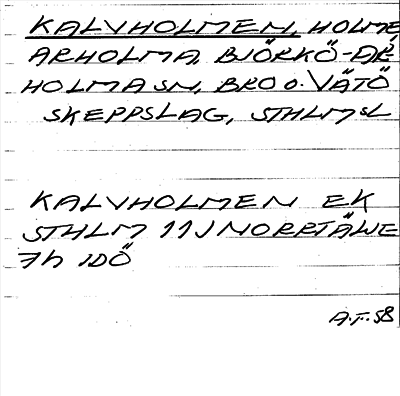 KALVHOLMEN, HOLME,
ARHOLMA, BJÖRKÖ-AR
HOLMA SN, BRO O. VÄTÖ
SKEPPSLAG, STHLMSL
KALVHOLMEN EK
STHLM 11J NORRTÄLJE
7h IDÖ
A.F. 58